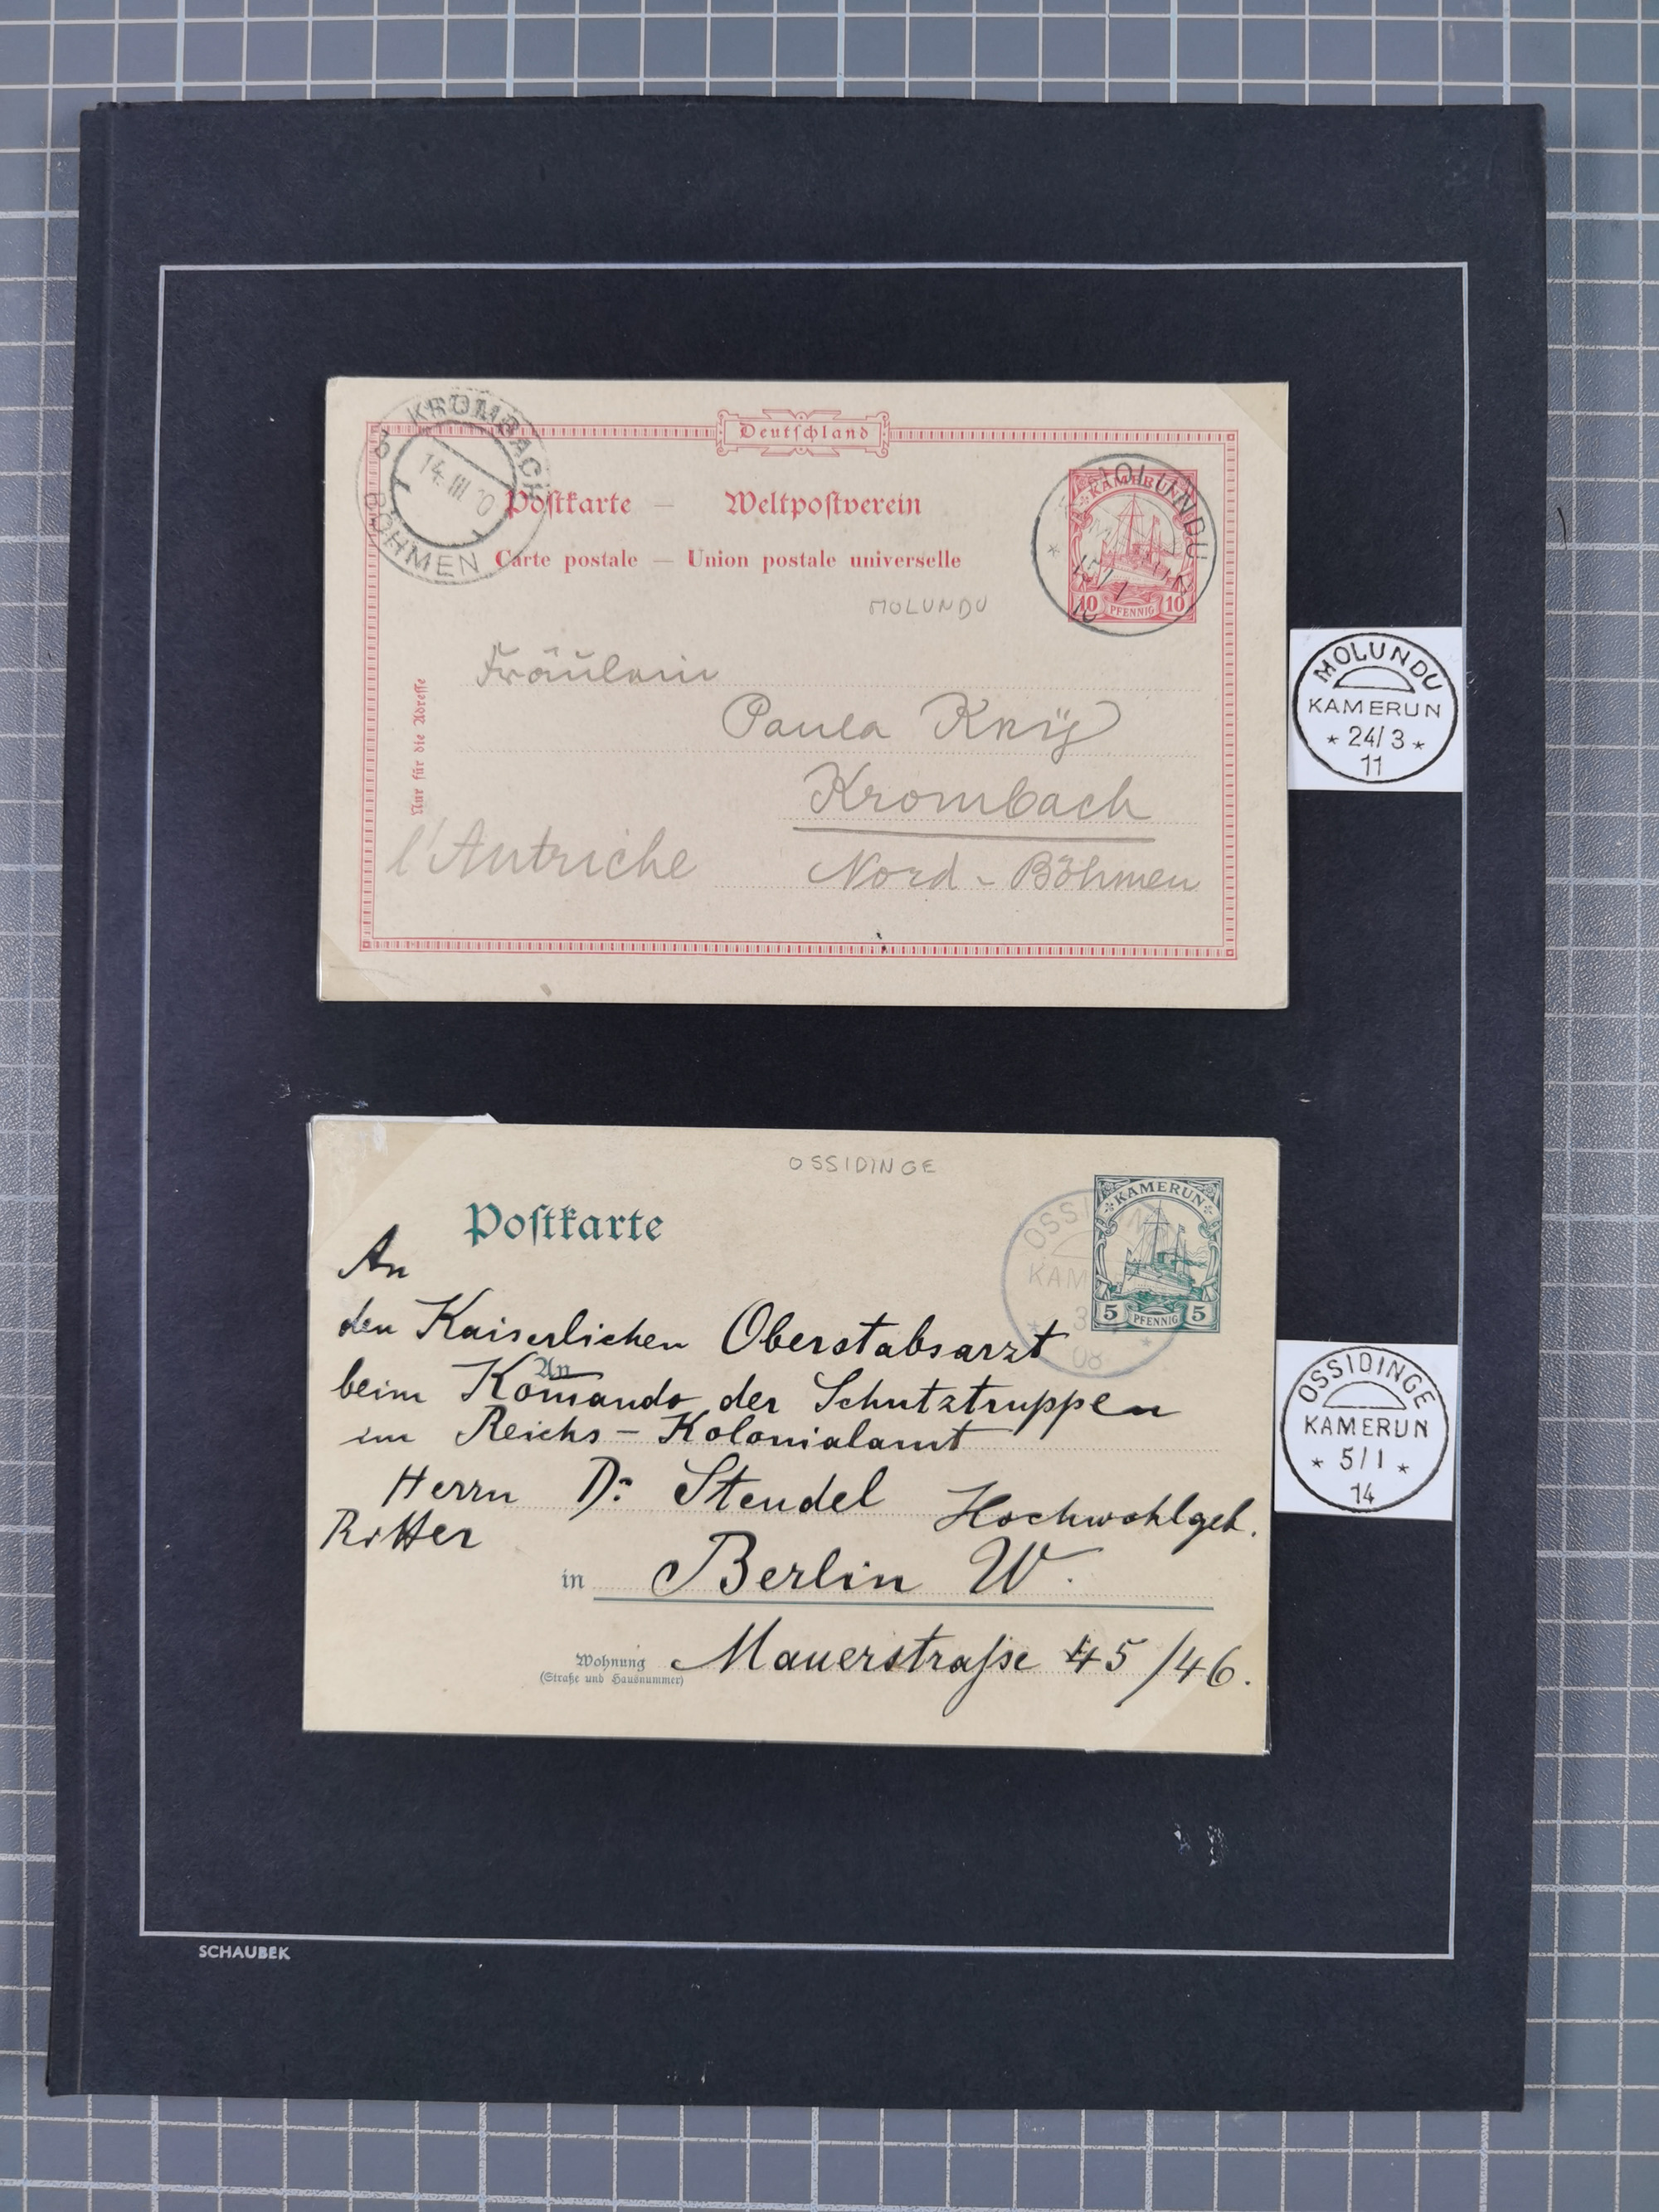 Deutschland
KROMBACH
14 III 10
BÖHMEN
Postkarte – Weltpostverein
Carte postale – Union postale universelle
MOLUNDU
KAMERUN
10 PFENNIG 10
MOLUNDU
Nur für die Adresse
Fräulein
Paula
Krombach
l'Autriche
Nord-Böhmen
MOLUNDU
KAMERUN
* 24/3 *
11
OSSIDINGE
Postkarte
KAMERUN
5 PFENNIG 5
OSSIDINGE
KAM
08
An
den Kaiserlichen Oberstabsarzt
An
beim Komando der Schutztruppen
im Reichs-Kolonialamt
Herrn Dr Steudel Hochwohlgeb.
Ritter
in Berlin W.
Wohnung
(Straße und Hausnummer)
Mauerstraſse 45/46.
OSSIDINGE
KAMERUN
* 5/1 *
14
SCHAUBEK